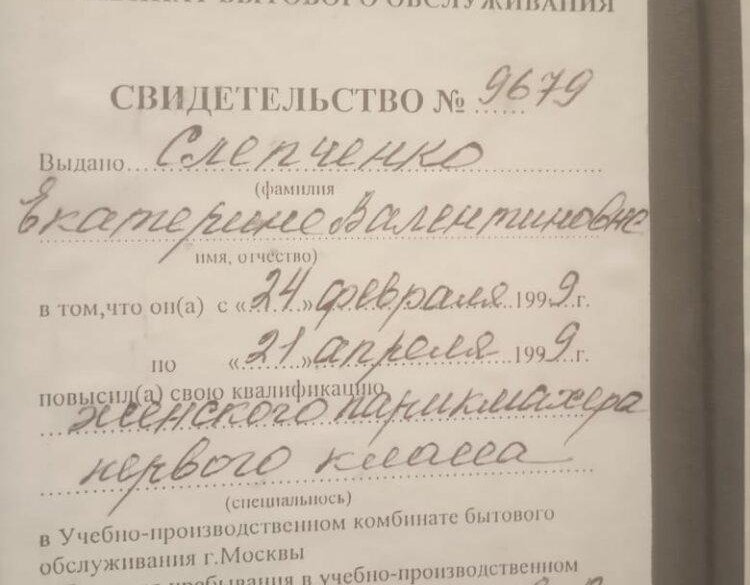 БЫТОВОГО ОБСЛУЖИВАНИЯ
СВИДЕТЕЛЬСТВО № 9679
Выдано Слепченко
(фамилия
Екатерине Валентиновне
имя, отчество)
в том,что он(а) с «24» февраля 1999г.
по «21» апреля 1999г.
повысил(а) свою квалификацию
женского парикмахера
первого класса
(специальнось)
в Учебно-производственном комбинате бытового
обслуживания г.Москвы
пребывания в учебно-производственном